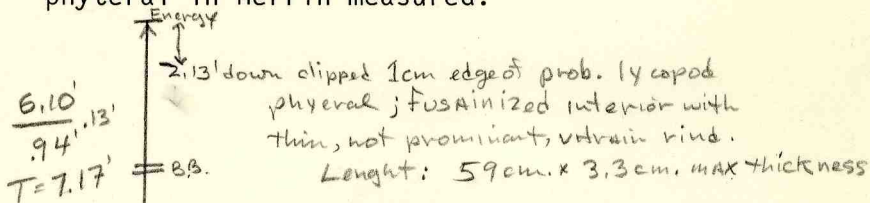 phyteral in Herrin measured.
Energy
2.13' down clipped 1cm edge of prob. lycopod
phyeral; fusainized interior with
thin, not prominent, vitrain rind.
Lenght: 59cm. x 3.3cm. max thickness
6.10'
.13'
.94'
T=7.17'
B.B.